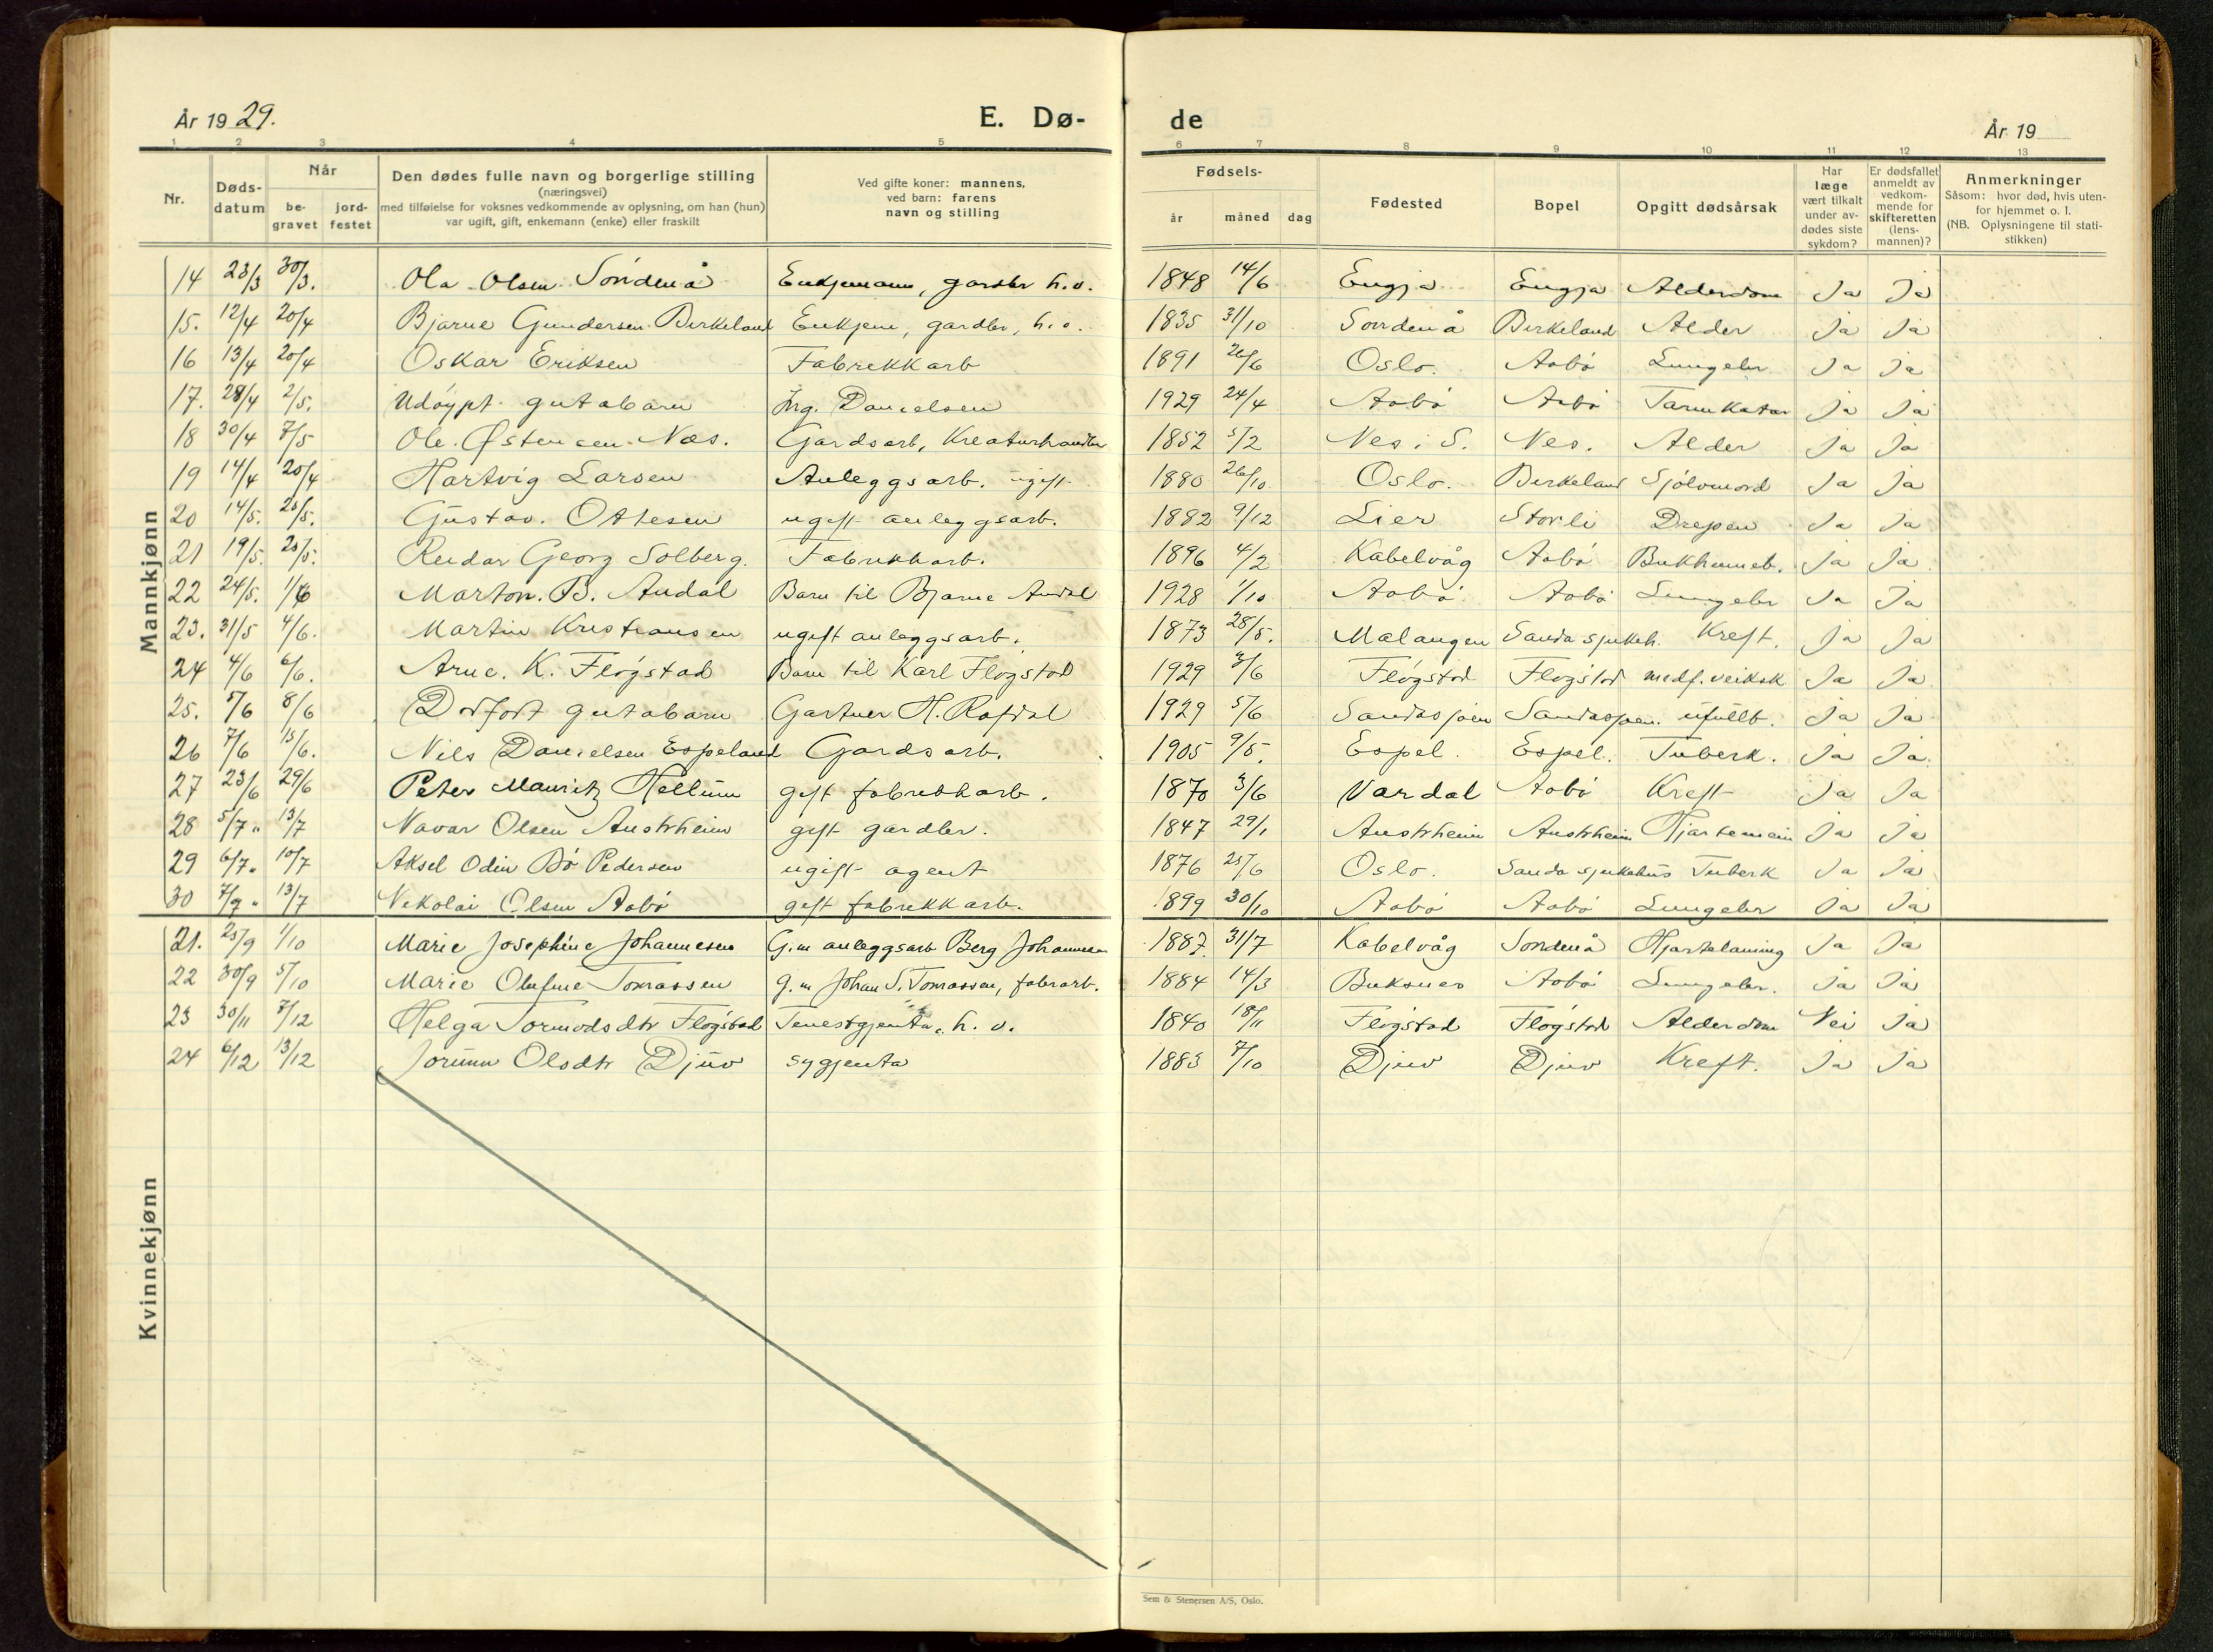 År 1929.
E. Dø-
1 2 3 4 5
Nr.
Døds-
datum
Når
be-
gravet
jord-
festet
Den dødes fulle navn og borgerlige stilling
(næringsvei)
med tilføielse for voksnes vedkommende av oplysning, om han (hun)
var ugift, gift, enkemann (enke) eller fraskilt
Ved gifte koner: mannens,
ved barn: farens
navn og stilling
de
År 19
6 7 8 9 10 11 12 13
Fødsels-
år måned dag
Fødested
Bopel
Opgitt dødsårsak
Har
læge
vært tilkalt
under av-
dødes siste
sykdom?
Er dødsfallet
anmeldt av
vedkom-
mende for
skifteretten
(lens-
mannen)?
Anmerkninger
Såsom: hvor død, hvis uten-
for hjemmet o. l.
(NB. Oplysningene til stati-
stikken)
Mannkjønn
14 23/3 30/3. Ola Olsen Söndenå Enkjemann, gardbr h.v. 1848 14/6 Engja Engja Alderdom Ja Ja
15. 12/4 20/4 Bjarne Gundersen Birkeland Enkjem, gardbr, h.v. 1835 31/10 Sondenå Birkeland Alder Ja Ja
16 13/4 20/4 Oskar Eriksen Fabrikkarb 1891 26/6 Oslo. Aabö Lungebr. Ja Ja
17. 28/4 2/5. Udöypt gutabarn Ing. Danielsen 1929 24/4 Aabö Aabö Tarmkatar Ja Ja
18 30/4 7/5 Ole Østensen Næs. Gardsarb, Kreaturhandlar 1852 5/2 Nes i S. Nes. Alder Ja Ja
19 14/4 20/4 Hartvig Larsen Anleggsarb. ugift 1880 26/10 Oslo. Birkeland Sjölvmord Ja Ja
20 14/5. 25/5. Gustav. Ottesen ugift anleggsarb. 1882 9/12 Lier Storli Drepen Ja Ja
21 19/5. 25/5. Reidar Georg Solberg. Fabrikkarb. 1896 4/2 Kabelvåg Aabö Bukhinneb. Ja Ja
22 24/5. 1/6 Morton. B. Audal Barn til Bjarne Audal 1928 1/10 Aabö Aabö Lungebr Ja Ja
23. 31/5 4/6. Martin Kristiansen ugift anleggsarb. 1873 28/5. Malangen Sanda sjukeh. Kreft. Ja Ja
24 4/6 6/6. Arne. K. Flögstad Barn til Karl Flögstad 1929 3/6 Flögstad Flögstad medf. veiksk Ja Ja
25. 5/6 8/6 Dødfødt gutabarn Gartner H. Rafdal 1929 5/6 Sandasjoen Sandasjoen. ufullb. Ja Ja
26 7/6 15/6. Nils Danielsen Espeland Gardsarb. 1905 9/5. Espel. Espel. Tuberk. Ja Ja
27 23/6 29/6 Peter Mauritz Hellum gift fabrikkarb. 1870 3/6 Vardal Aabö Kreft Ja Ja
28 5/7. 13/7 Navar Olsen Austrheim gift gardbr. 1847 29/1 Austrheim Austrheim Hjartemein Ja Ja
29 6/7. 10/7 Aksel Odin Bö Pedersen ugift agent 1876 25/6 Oslo. Sanda sjukahus Tuberk Ja Ja
30 7/7. 13/7 Nikolai Olsen Aabö gift fabrikkarb. 1899 30/10 Aabö Aabö Lungebr Ja Ja
Kvinnekjønn
21. 25/9 1/10 Marie Josephine Johannesen G.m anleggsarb Berg Johannesen 1887. 31/7 Kabelvåg Sondenå Hjartelaming Ja Ja
22 30/9 5/10 Marie Olufine Tomassen g.m Johan S. Tomassen, fabrarb. 1884 14/3 Buksnes Aabö Lungebr. Ja Ja
23 30/11 7/12 Helga Tormodsdtr Flögstad Tenestgjenta, h. v. 1840 18/11 Flögstad Flögstad Alderdom Nei Ja
24 6/12 13/12 Jorunn Olsdtr Djuv sygjenta 1883 7/10 Djuv Djuv Kreft. Ja Ja
Sem & Stenersen A/S, Oslo.